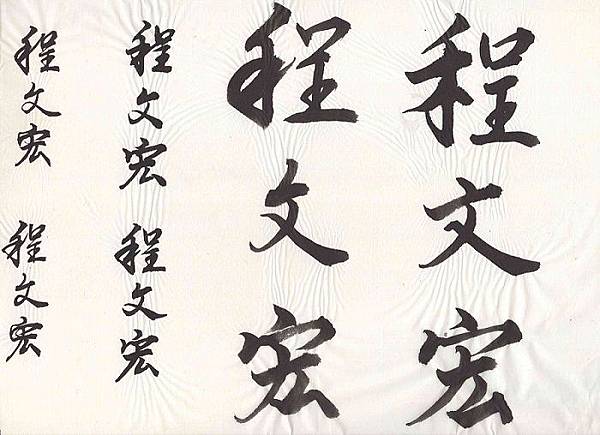 程文宏
程文宏
程文宏
程文宏
程文宏
程文宏